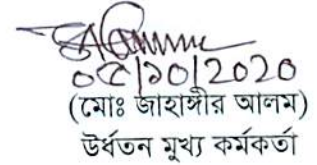 ০৫/১০/2020
(মোঃ জাহাঙ্গীর আলম)
উর্ধতন মুখ্য কর্মকর্তা